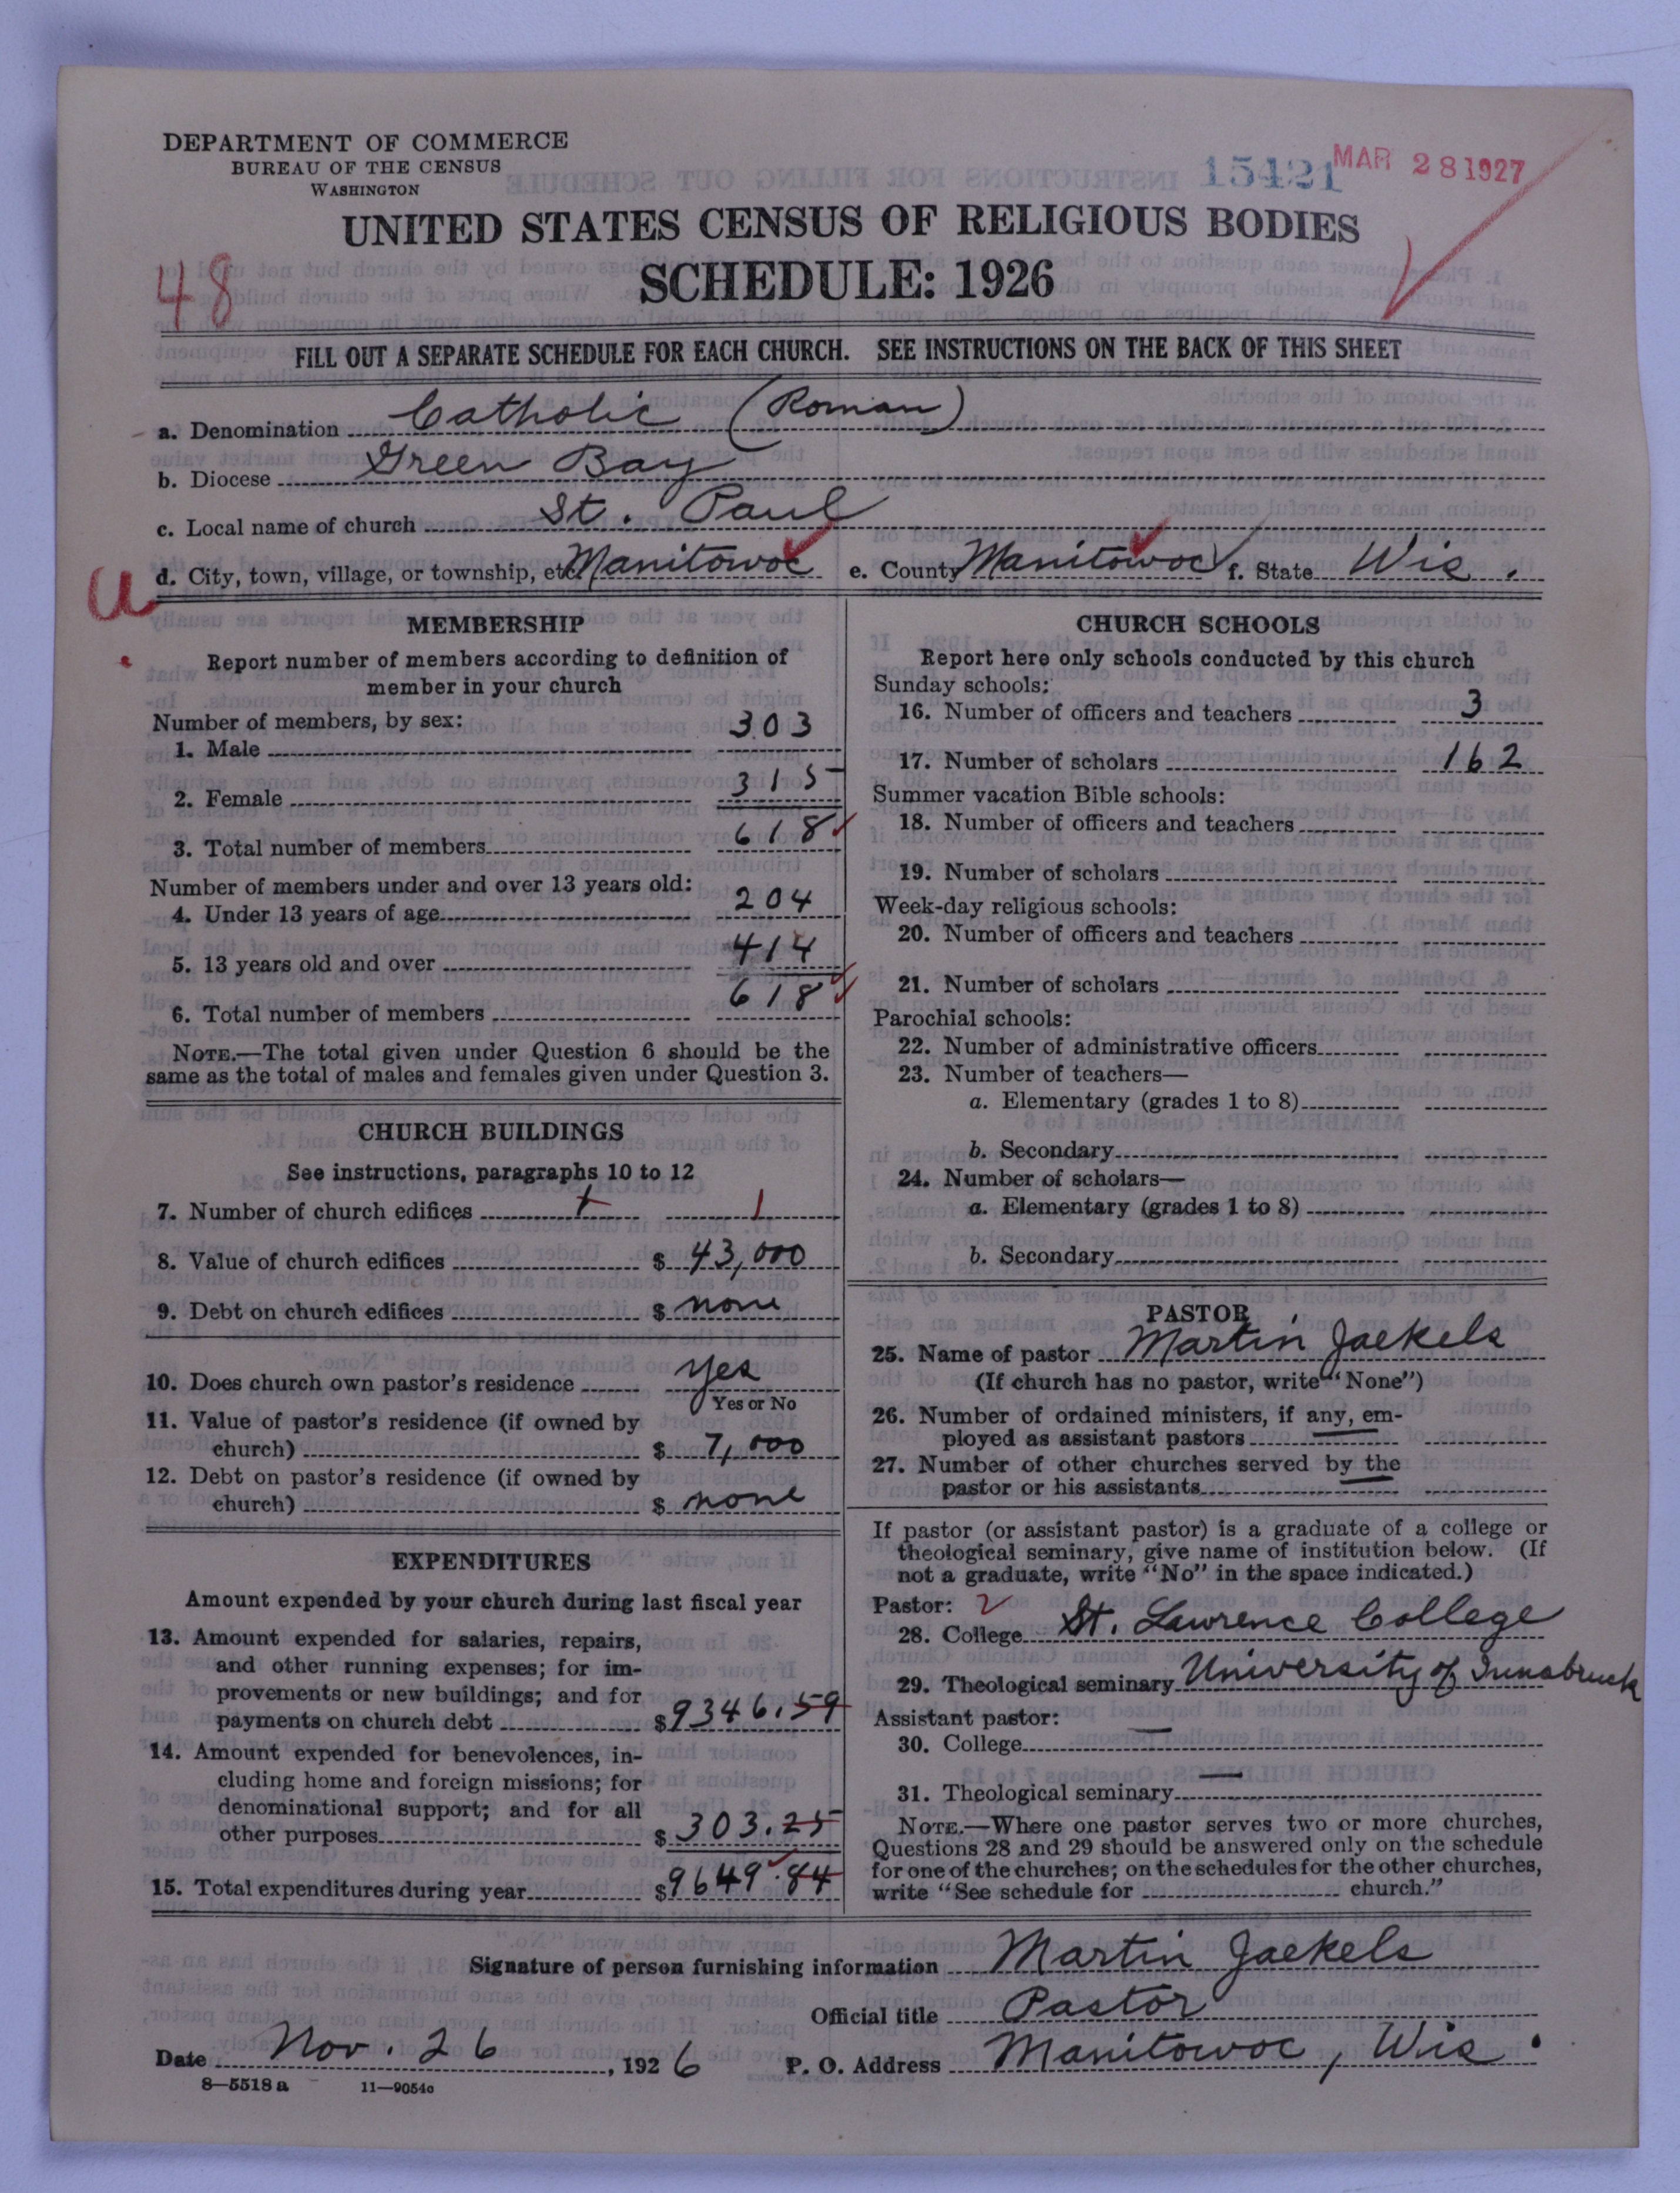 DEPARTMENT OF COMMERCE
BUREAU OF THE CENSUS
WASHINGTON
15421
MAR 28 1927
UNITED STATES CENSUS OF RELIGIOUS BODIES
SCHEDULE: 1926
48
FILL OUT A SEPARATE SCHEDULE FOR EACH CHURCH. SEE INSTRUCTIONS ON THE BACK OF THIS SHEET
a. Denomination Catholic (Roman)
b. Diocese Green Bay
c. Local name of church St. Paul
d. City, town, village, or township, etc. Manitowoc e. County Manitowoc f. State Wis.
U
MEMBERSHIP
Report number of members according to definition of
member in your church
Number of members, by sex:
1. Male 303
2. Female 315
3. Total number of members 618
Number of members under and over 13 years old:
4. Under 13 years of age 204
5. 13 years old and over 414
6. Total number of members 618
NOTE.—The total given under Question 6 should be the
same as the total of males and females given under Question 3.
CHURCH BUILDINGS
See instructions, paragraphs 10 to 12
7. Number of church edifices 1 1
8. Value of church edifices $ 43,000
9. Debt on church edifices $ none
10. Does church own pastor's residence yes
Yes or No
11. Value of pastor's residence (if owned by
church) $ 7,000
12. Debt on pastor's residence (if owned by
church) $ none
EXPENDITURES
Amount expended by your church during last fiscal year
13. Amount expended for salaries, repairs,
and other running expenses; for im-
provements or new buildings; and for
payments on church debt $9346.59
14. Amount expended for benevolences, in-
cluding home and foreign missions; for
denominational support; and for all
other purposes $ 303.25
15. Total expenditures during year $9649.84
CHURCH SCHOOLS
Report here only schools conducted by this church
Sunday schools:
16. Number of officers and teachers 3
17. Number of scholars 162
Summer vacation Bible schools:
18. Number of officers and teachers
19. Number of scholars
Week-day religious schools:
20. Number of officers and teachers
21. Number of scholars
Parochial schools:
22. Number of administrative officers
23. Number of teachers—
a. Elementary (grades 1 to 8)
b. Secondary
24. Number of scholars—
a. Elementary (grades 1 to 8)
b. Secondary
PASTOR
25. Name of pastor Martin Jaekels
(If church has no pastor, write "None")
26. Number of ordained ministers, if any, em-
ployed as assistant pastors
27. Number of other churches served by the
pastor or his assistants
If pastor (or assistant pastor) is a graduate of a college or
theological seminary, give name of institution below. (If
not a graduate, write "No" in the space indicated.)
Pastor: 2
28. College St. Lawrence College
29. Theological seminary University of Innsbruck
Assistant pastor:
30. College —
31. Theological seminary —
NOTE.—Where one pastor serves two or more churches,
Questions 28 and 29 should be answered only on the schedule
for one of the churches; on the schedules for the other churches,
write "See schedule for church."
Signature of person furnishing information Martin Jaekels
Official title Pastor
Date Nov. 26, 1926 P. O. Address Manitowoc, Wis.
8—5518 a 11—9054a